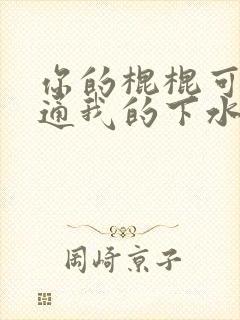 你的棍棍可
通我的下水
岡崎京子